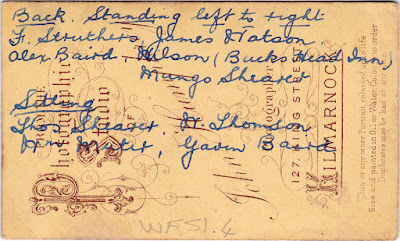 Back. Standing left to right
F. Struthers, James Watson
Alex Baird, Wilson (Bucks Head Inn)
Mungo Shearer
Sitting
Thos Shearer, W Thomson
Wm Muter, Gavin Baird
WFS1.4
Photographic
Studio
OF
John
Photographer
127, KING STREET
KILMARNOCK
This or any other Portrait enlarged to life
Size and painted in Oil or Water Colour to order
Duplicates may be had at